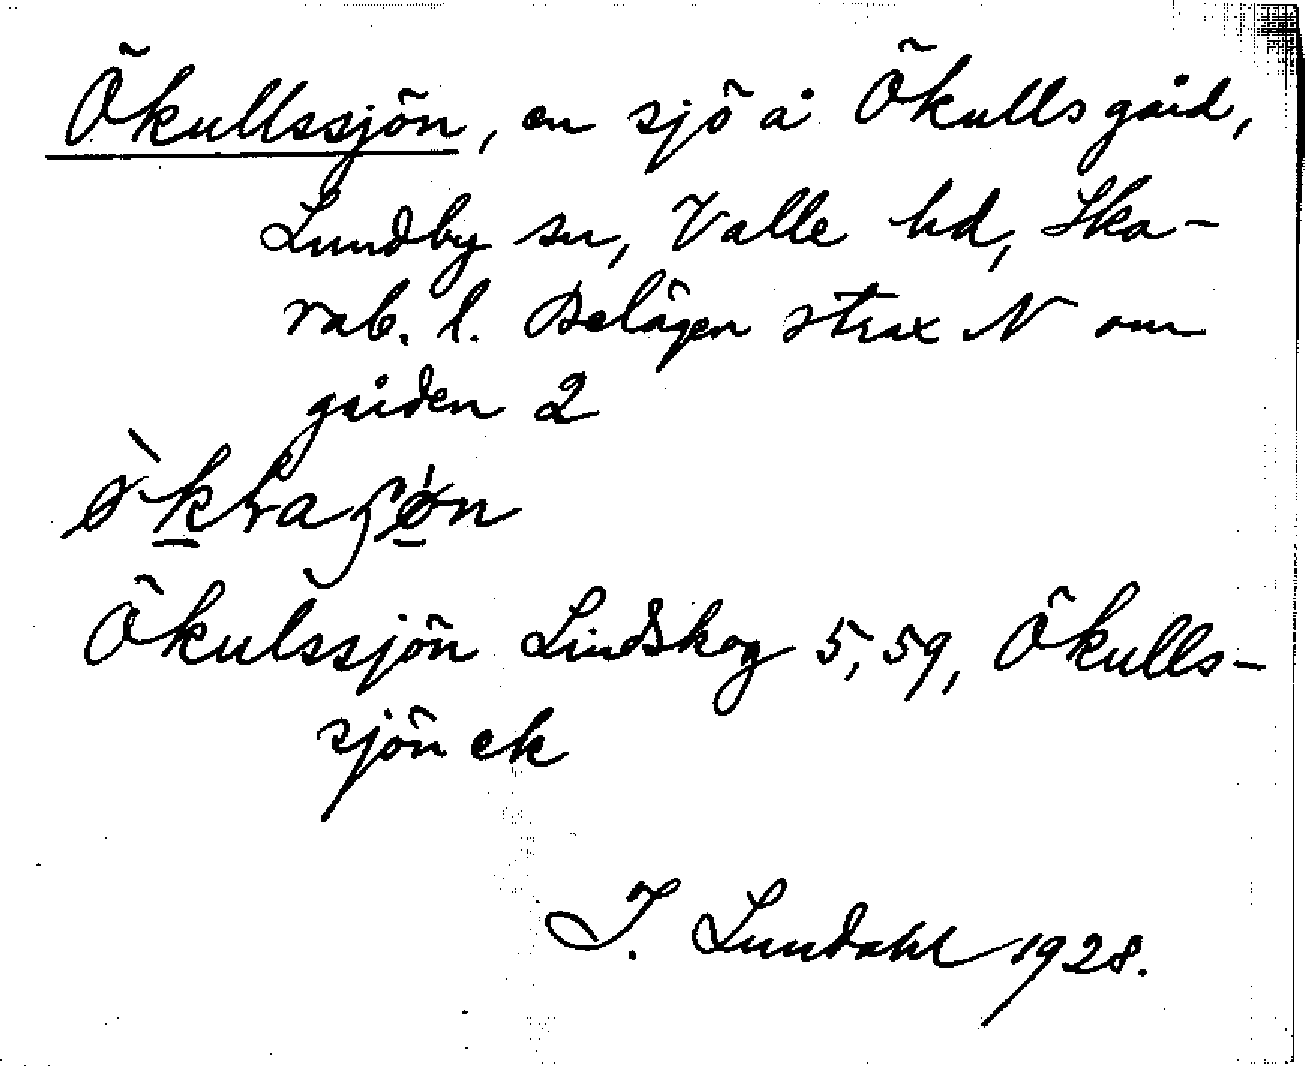 Ökullssjön, en sjö å Ökulls gård,
Lundby sn, Valle hd, Ska-
rab. l. Belägen strax N om
gården 2
Ökulssjön Lindskog 5,59, Ökulls-
sjön ek
I. Lundahl 1928.